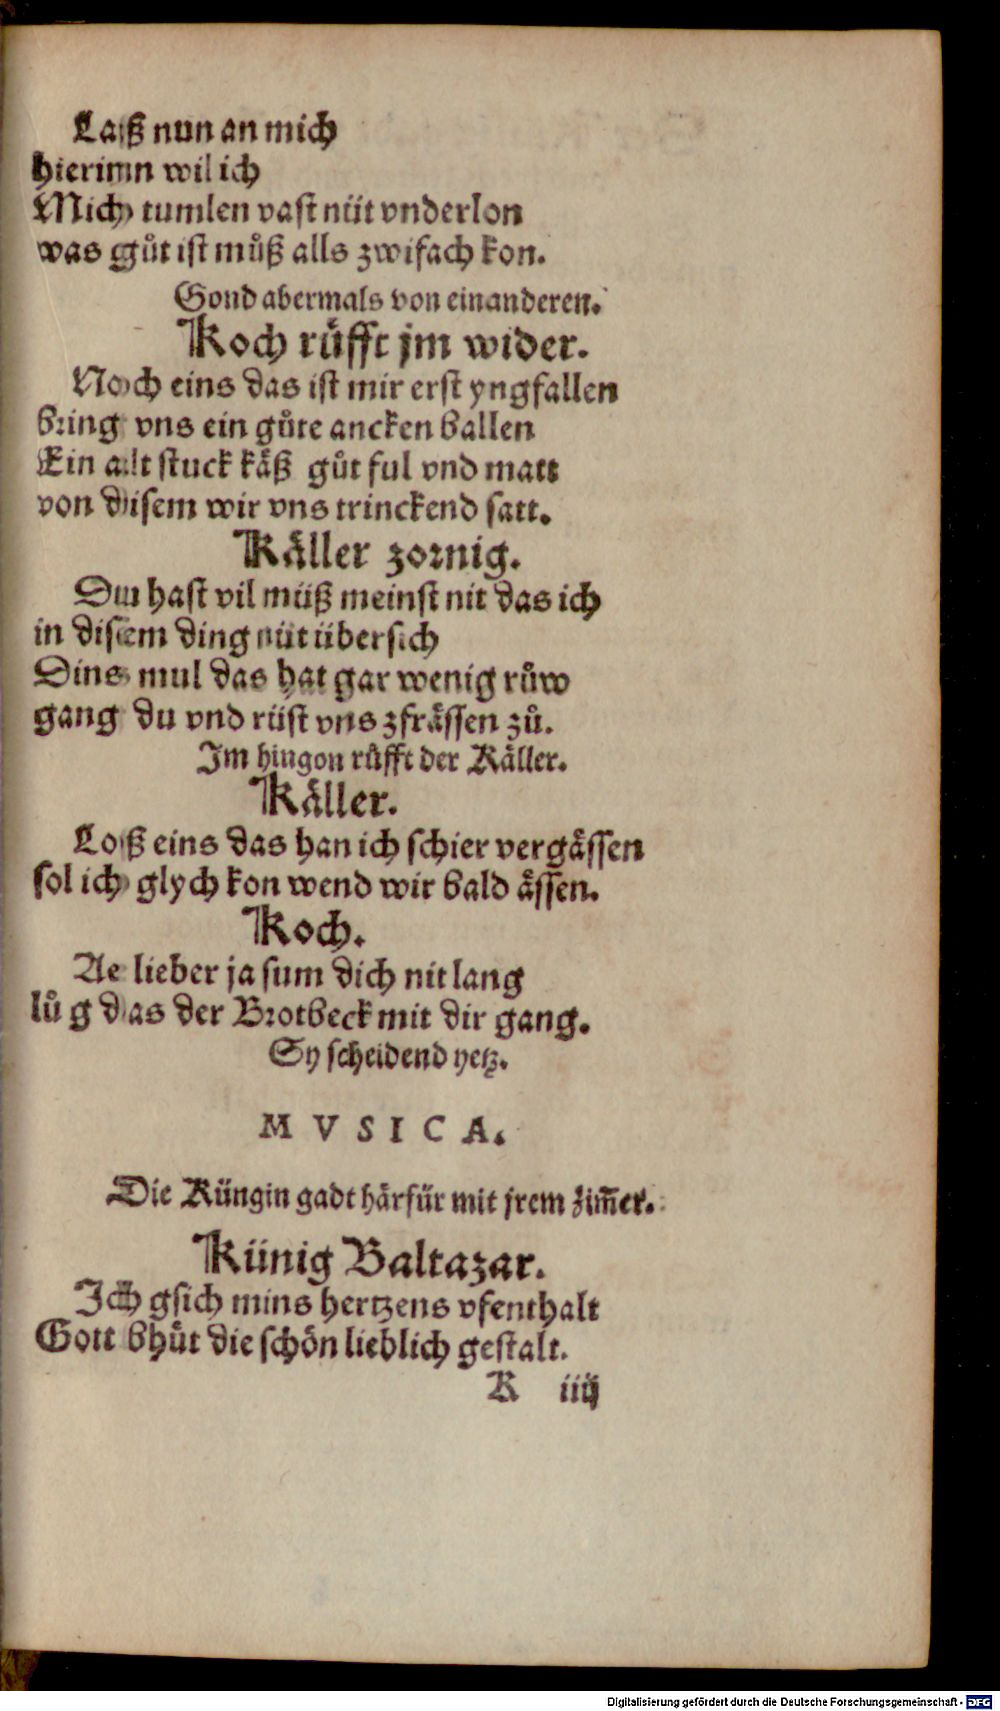 Laß nun an mich
hierinn wil ich
Mich tumlen vast nüt vnderlon
was gůt ist můß alls zwifach kon.
Gond abermals von einanderen.
Koch rüfft jm wider.
Noch eins das ist mir erst yngfallen
bring vns ein gůte ancken ballen
Ein alt stuck käß gůt ful vnd matt
von disem wir vns trinckend satt.
Käller zornig.
Du hast vil müß meinst nit das ich
in disem ding nüt übersich
Dins mul das hat gar wenig růw
gang du vnd rüst vns zfrässen zů.
Jm hingon rüfft der Käller.
Käller.
Loß eins das han ich schier vergässen
sol ich glych kon wend wir bald ässen.
Koch.
Ae lieber ja sum dich nit lang
lůg das der Brotbeck mit dir gang.
Sy scheidend yetz.
MVSICA.
Die Küngin gadt härfür mit jrem zim̃er.
Künig Baltazar.
Ich gsich mins hertzens vfenthalt
Gott bhüt die schön lieblich gestalt.
K iiij
Digitalisierung gefördert durch die Deutsche Forschungsgemeinschaft - DFG